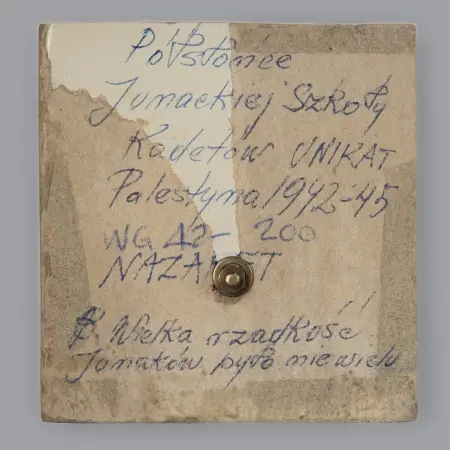 Półsłońce
Junackiej Szkoły
Kadetów UNIKAT
Palestyna 1942-45
WG 42- 200
NAZARET
Wielka rzadkość
Junaków było niewielu